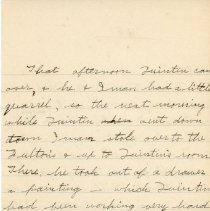 That afternoon Quintin cam
over, & he & Iman had a little
quarrel, so the next morning
while Quintin when went down
town Iman stole over to the
Fulton's & up to Quintin's room.
There, he took out of a drawer
a painting – which Quintin
had been working very hard